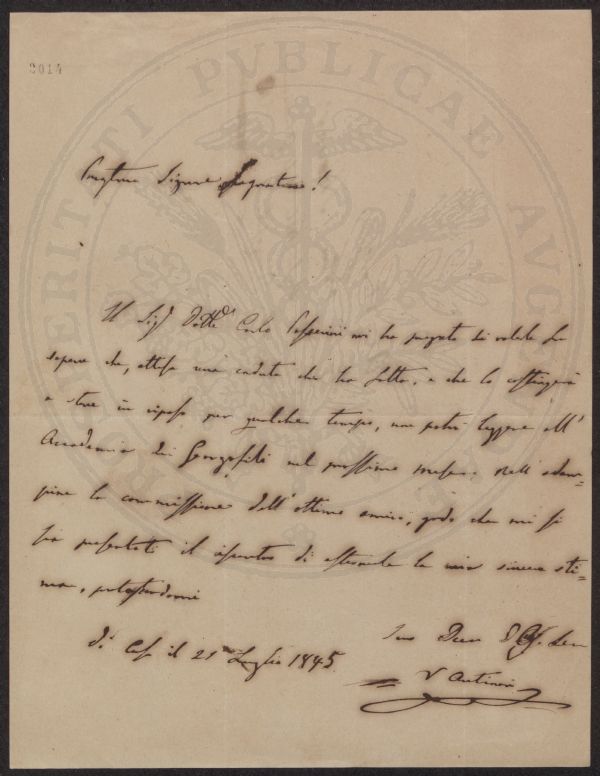 2014
PROSPERITATI PVBLICAE AVGENDAE
Signore Segretario!
Il Sig.r Dott.e Carlo Passerini mi ha pregato di voler far
sapere che, attesa una caduta che ha fatto, e che lo costringerà
a stare in riposo per qualche tempo, non potrà leggere all'
Accademia dei Georgofili nel prossimo mese. Nell' adem-
pire la commissione dell' ottimo amico, godo che mi si
sia presentato il di la mia sincera sti-
ma, protestandomi
Di Casa il 21 Luglio 1845.
Suo Dev.
V Antinori